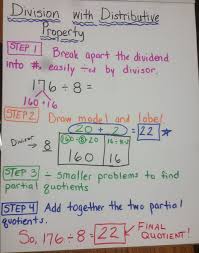 Division with Distributive
Property
STEP 1 Break apart the dividend
into #s easily ÷ed by divisor.
176 ÷ 8 =
160 + 16
STEP 2 Draw model and label
20 + 2 = 22
Divisor → 8
160 ÷ 8 = 20 16 ÷ 8 = 2
160 16
STEP 3 ÷ smaller problems to find
partial quotients
STEP 4 Add together the two partial
quotients.
So, 176 ÷ 8 = 22 FINAL
QUOTIENT!